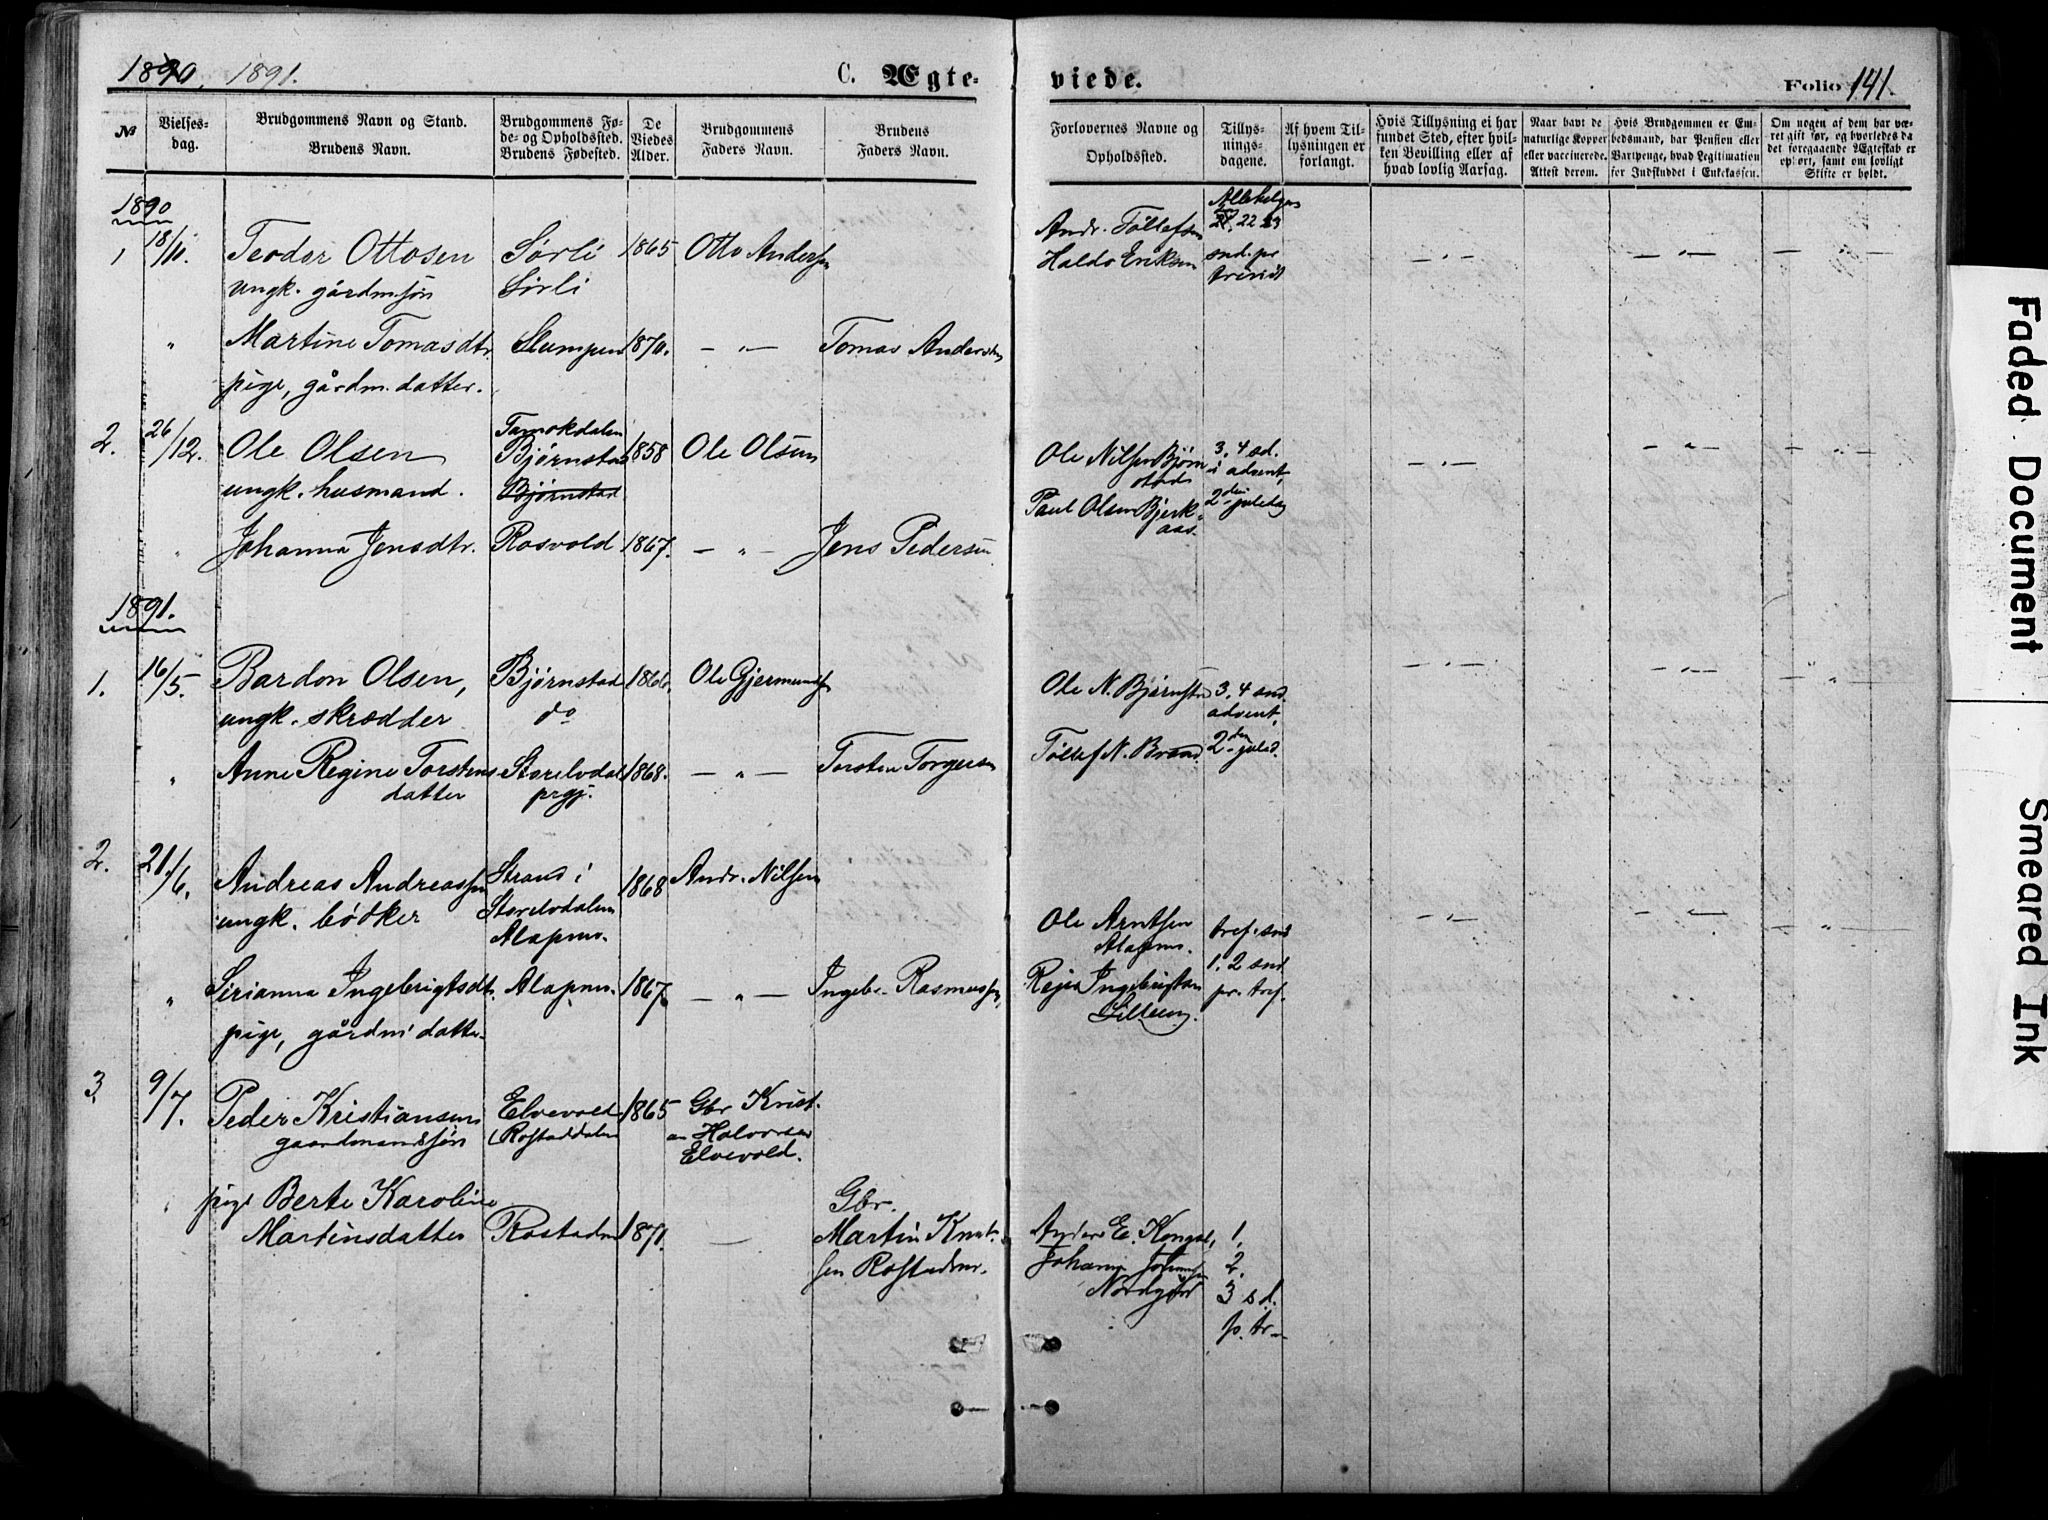 1890, 1891.
C. Ægte-
viede.
Folio 141.
№
Vielses-
dag.
Brudgommens Navn og Stand.
Brudens Navn.
Brudgommens Fø-
de- og Opholdssted.
Brudens Fødested.
De
Viedes
Alder.
Brudgommens
Faders Navn.
Brudens
Faders Navn.
Forlovernes Navne og
Opholdssted.
Tillys-
nings-
dagene.
Af hvem Til-
lysningen er
forlangt.
Hvis Tillysning ei har
fundet Sted, efter hvil-
ken Bevilling eller af
hvad lovlig Aarsag.
Naar havt de
naturlige Kopper
eller vaccinerede.
Attest derom.
Hvis Brudgommen er Em-
bedsmand, har Pension eller
Vartpenge, hvad Legitimation
for Indskuddet i Enkekassen.
Om nogen af dem har væ-
ret gift før, og hvorledes da
det foregaaende Ægteskab er
ophørt, samt om lovligt
Skifte er holdt.
1890
1 18/11. Teodor Ottosen Sørli 1865 Otto Andersen
ungk. gårdm.søn Sørli
Andr. Tollefsen
Haldo Eriksen
Allehelgen
22 23
snd. pr
trinit
" Martine Tomasdtr. Slumpen 1870. — " — Tomas Andersen
pige, gårdm. datter.
2. 26/12. Ole Olsen Tamokdalen
Bjørnstad 1858 Ole Olsen
ungk. husmand. Bjørnstad
Ole Nilsen Bjørn
stad
Paul Olsen Bjerk-
aas.
3. 4 sd.
i advent,
2den juledag
" Johanna Jensdtr. Rosvold 1867. — " — Jens Pedersen
1891.
1. 16/5. Bardon Olsen, Bjørnstad 1866. Ole Gjermundsen
ungk. skrædder do
Ole N. Bjørnstad 3. 4 snd.
advent,
Tollef N. Brand 2den juled.
" Anne Regine Torstens Storelvdal 1868. — " — Torsten Torgersen
datter prgj.
2. 21/6. Andreas Andreassen Strand i 1868 Andr. Nilsen
ungk. bødker Storelvdalen
Alapmo.
Ole Arntsen
Alapmo.
tref. snd
1. 2 snd
pr. tref.
" Sirianna Ingebrigtsdtr. Alapmo. 1867. — " — Ingebr. Rasmussen,
pige, gårdm. datter.
Ingebrigtsen
3. 9/7. Peder Kristiansen Elvevold 1865 Gbr Krist.
gaardmandssøn i Rostaddalen an Halvorsen
Elvevold.
pige Berte Karoline Gbr.
Martinsdatter Rostadmo 1871. — Martin Knut-
sen Rostadmo.
Anders E. Kongsl,
Johan Johansen
Nordgård
1.
2.
3 sd.
p. tr.
Faded Document
Smeared Ink